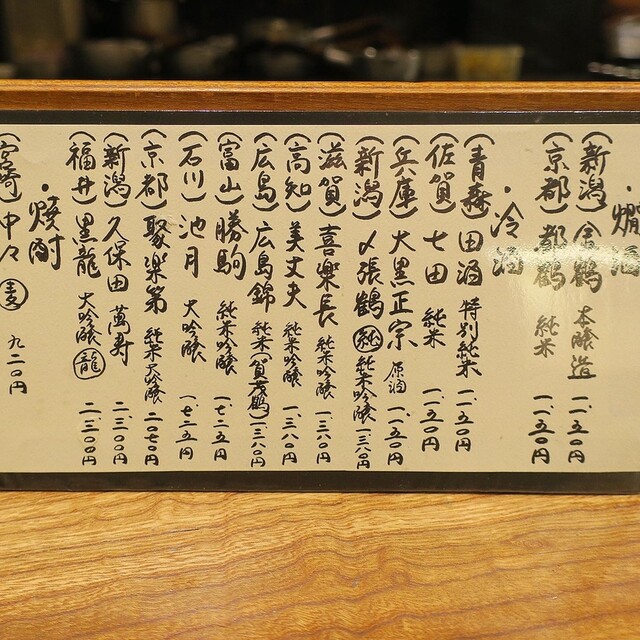 ・燗酒
(新潟) 金鶴 本醸造 一、一五〇円
(京都) 都鶴 純米 一、一五〇円
・冷酒
(青森) 田酒 特別純米 一、一五〇円
(佐賀) 七田 純米 一、一五〇円
(兵庫) 大黒正宗 原酒 一、一五〇円
(新潟) 〆張鶴 純 純米吟醸 一、三八〇円
(滋賀) 喜楽長 純米吟醸 一、三八〇円
(高知) 美丈夫 純米吟醸 一、三八〇円
(広島) 広島錦 純米 (賀茂鶴) 一、三八〇円
(富山) 勝駒 純米吟醸 一、七二五円
(石川) 池月 大吟醸 一、七二五円
(京都) 聚楽第 純米大吟醸 二、〇七〇円
(新潟) 久保田 萬寿 二、三〇〇円
(福井) 黒龍 大吟醸 龍 二、三〇〇円
・焼酎
(宮崎) 中々 麦 九二〇円